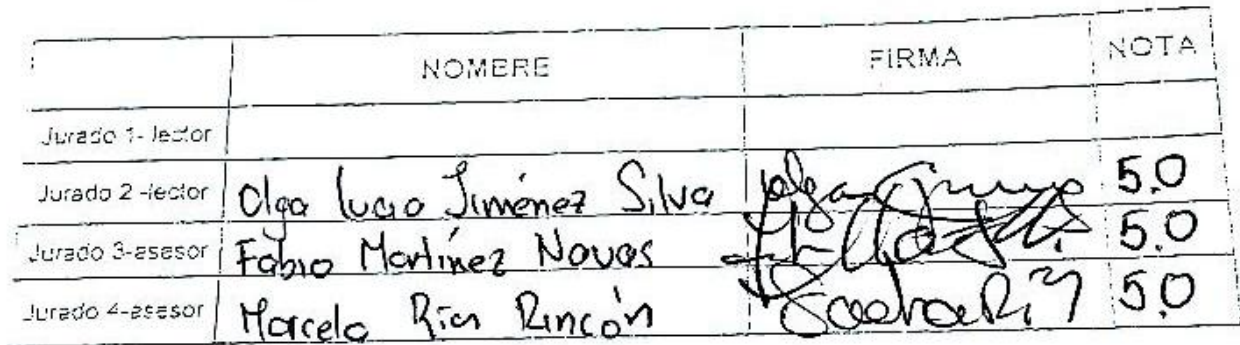 NOMBRE FIRMA NOTA
Jurado 1- lector
Jurado 2 -lector Olga Lucia Jiménez Silva 5.0
Jurado 3-asesor Fabio Martínez Navas 5.0
Jurado 4-asesor Marcela Rincón 5.0